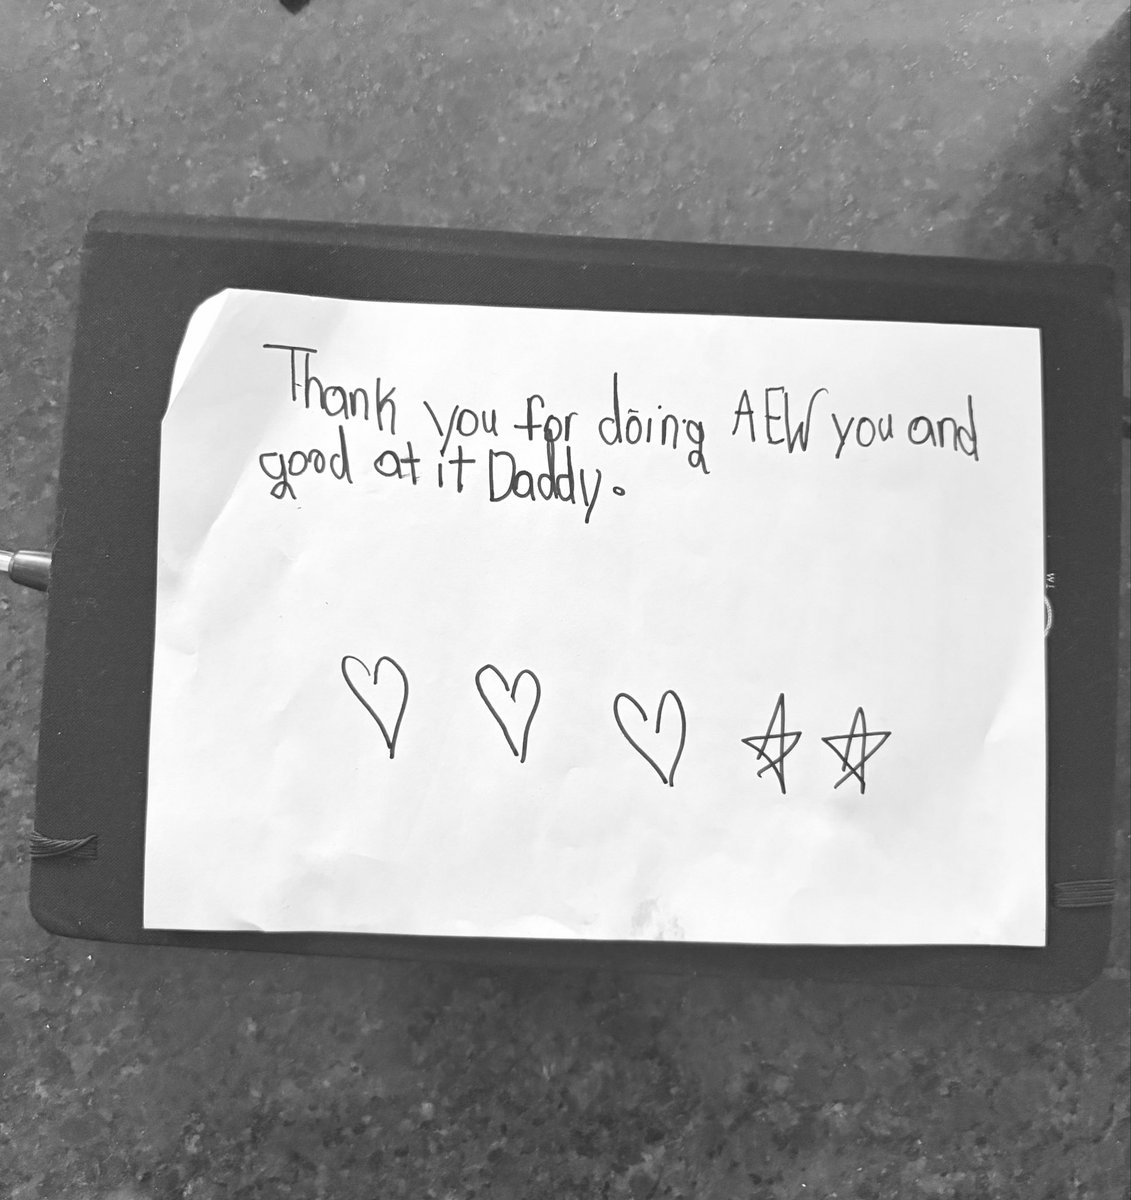 Thank you for dōing AEW you and
good at it Daddy.